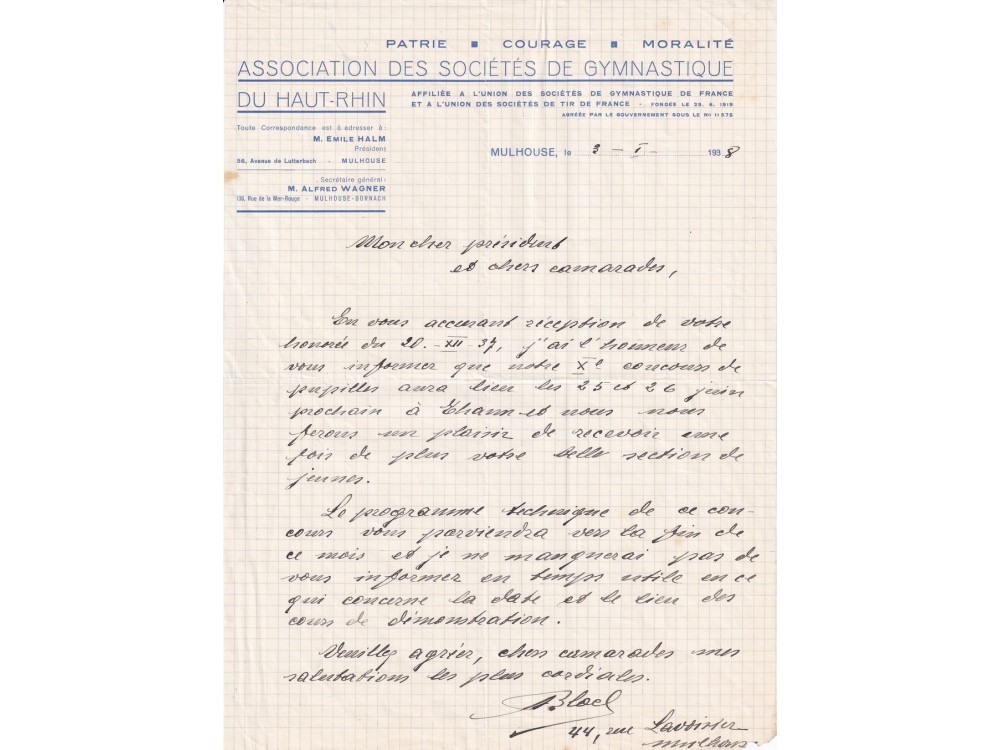 PATRIE ■ COURAGE ■ MORALITÉ
ASSOCIATION DES SOCIÉTÉS DE GYMNASTIQUE
DU HAUT-RHIN
AFFILIÉE A L'UNION DES SOCIÉTÉS DE GYMNASTIQUE DE FRANCE
ET A L'UNION DES SOCIÉTÉS DE TIR DE FRANCE - FONDÉE LE 25. 6. 1919
AGRÉÉE PAR LE GOUVERNEMENT SOUS LE No 11575
Toute Correspondance est à adresser à:
M. EMILE HALM
Président
56, Avenue de Lutterbach - MULHOUSE
Secrétaire général:
M. ALFRED WAGNER
136, Rue de la Mer-Rouge - MULHOUSE-DORNACH
MULHOUSE, le 3 - I - 1938
Mon cher président
et chers camarades,
En vous accusant réception de votre
honorée du 20.-XII-37, j'ai l'honneur de
vous informer que notre Xe concours de
pupilles aura lieu les 25 et 26 juin
prochain à Thann et nous nous
ferons un plaisir de recevoir une
fois de plus votre belle section de
jeunes.
Le programme technique de ce con-
cours vous parviendra vers la fin de
ce mois et je ne manquerai pas de
vous informer en temps utile en ce
qui concerne la date et le lieu des
cours de démonstration.
Veuillez agréer, chers camarades mes
salutations les plus cordiales.
44, rue Lavoisier
Mulhouse